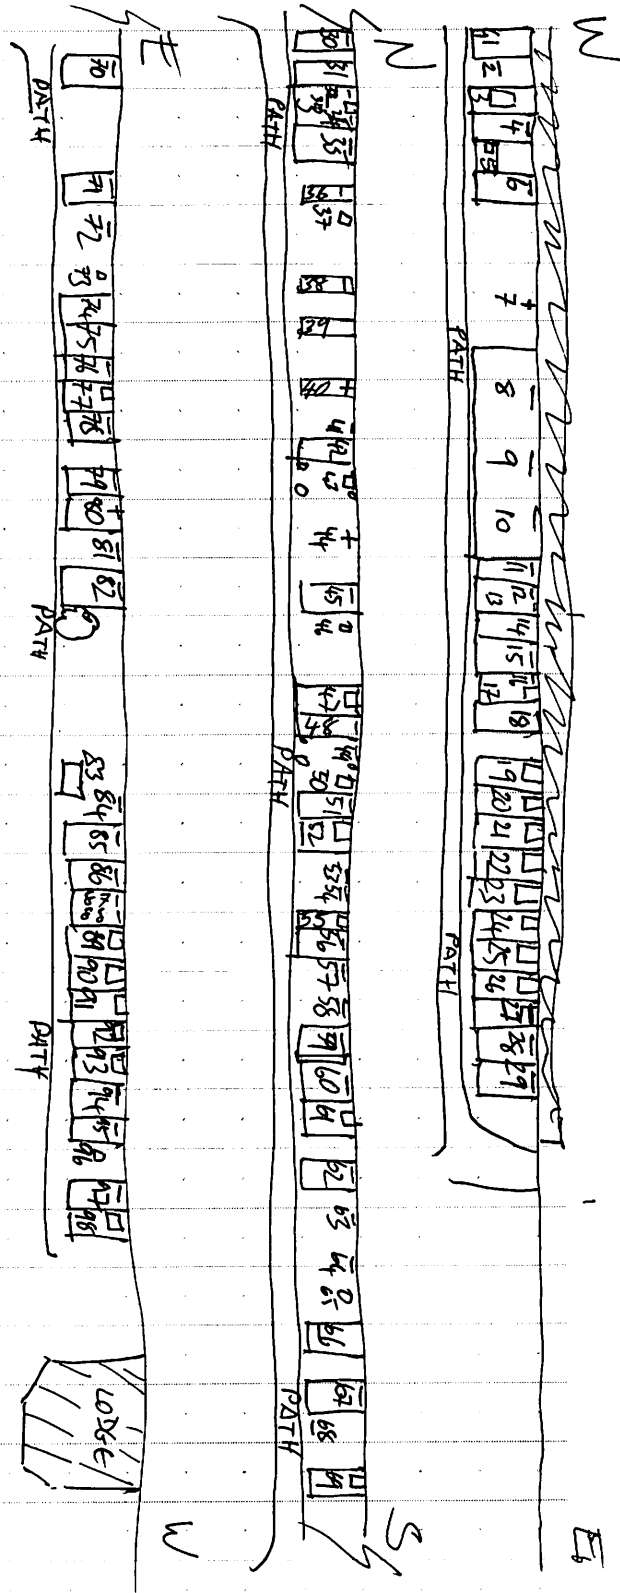 W E
2 3 4 5 6 7 8 9 10 11 12 13 14 15 16 17 18 19 20 21 22 23 24 25 26 27 28 29
PATH PATH
N S
30 31 35 36 37 38 39 40 41 42 43 44 45 46 47 48 49 50 51 52 53 54 55 56 57 58 59 60 61 62 63 64 65 66 67 68 69
PATH PATH PATH
E W
70 71 72 73 74 75 76 77 78 79 80 81 82 83 84 85 86 89 90 91 92 93 94 95 96 97 98 LODGE
PATH PATH PATH